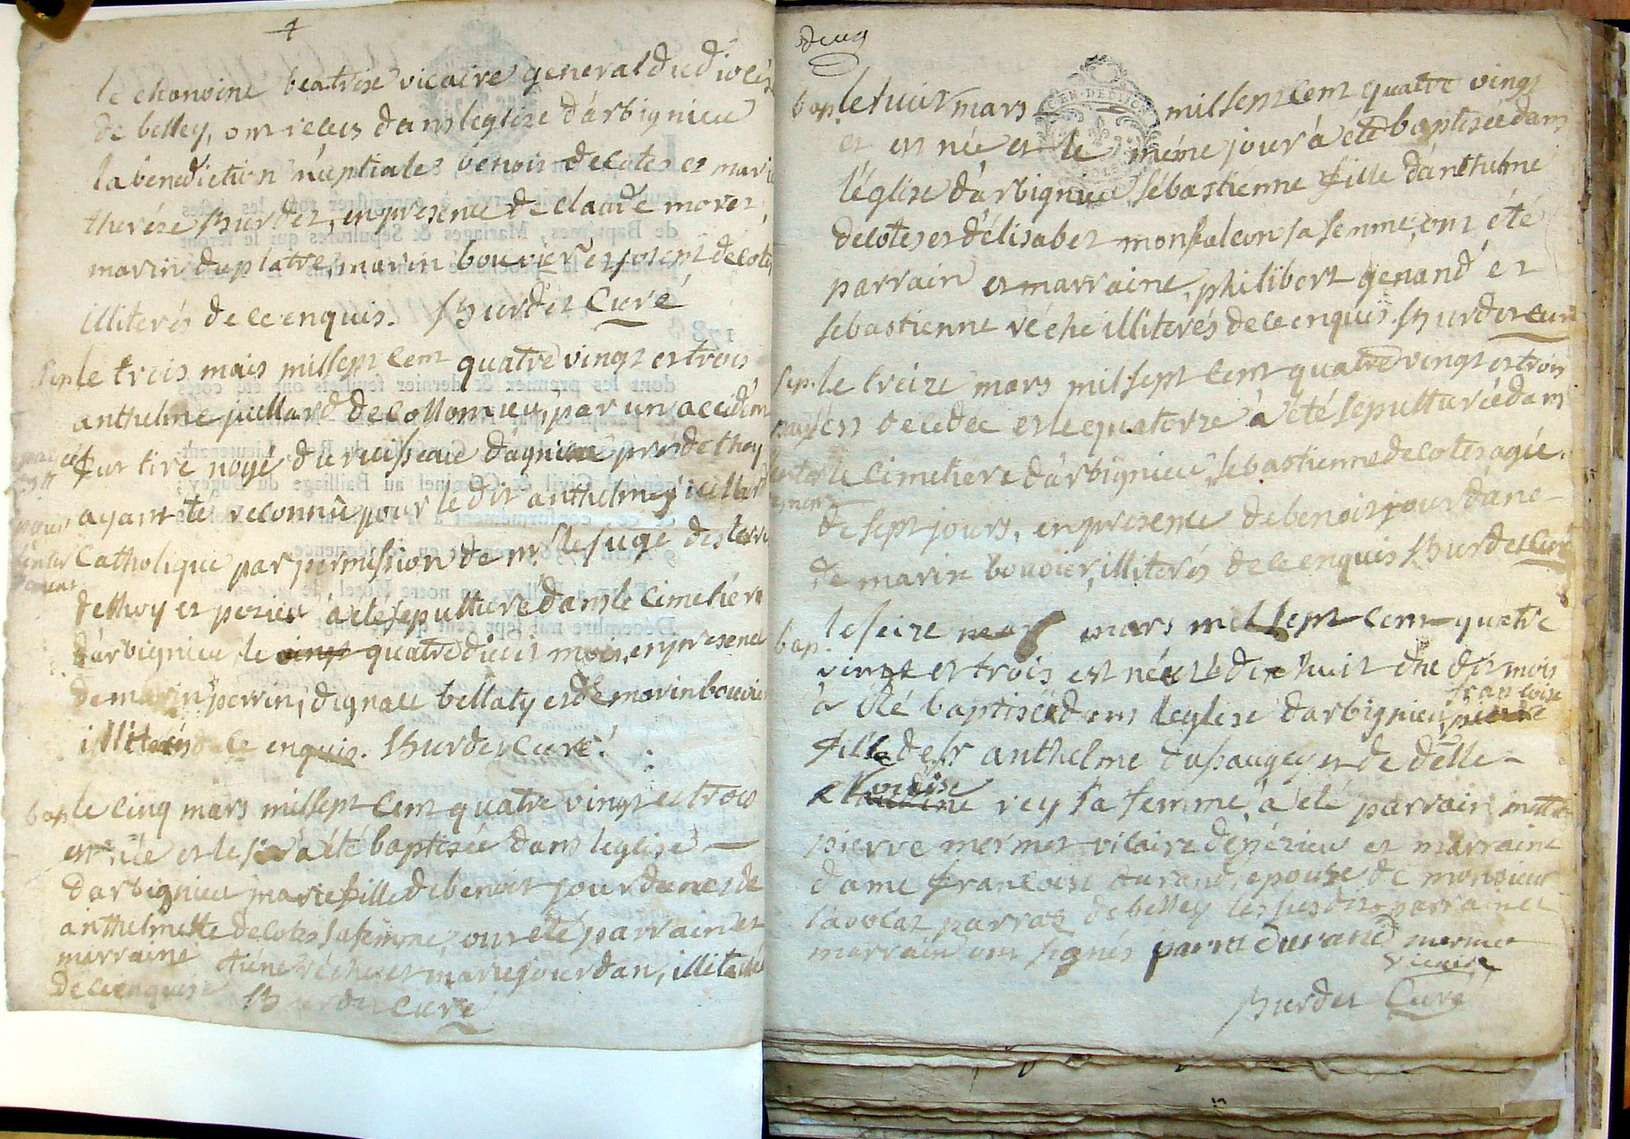 4
le chanoine beatrix vicaire general du diocese
de belley, ont reçus dans leglise d'arbignieu
la bénédiction nuptiale benoit decotes et marie
therése burdet, en presence de claude moret,
marin duplatre, marin bouvier et joseph decotes
illiterés de ce enquis. Burdet Curé
sep. le trois mars mil sept cent quatre vingt et trois
anthelme juillard de collomieu, par un accident
fut tiré noyé du ruisseau d'agnieu pres de thoy
ayant été reconnû pour le dit anthelme juillard
catholique par permission de mr. le juge des terres
de thoy et pezieu a été sepulturé dans le cimetiére
d'arbignieu, le vingt quatre du dit mois, en presence
de marin perrin, d'ignace bellaty et de marin bouvier
illiterés de ce enquis. Burdet curé.
bap. le cinq mars mil sept cent quatre vingt et trois
est née et le six à été baptisée dans leglise
d'arbignieu marie fille de benoit jourdan et de
anthelmette decotes sa femme, ont été parrain et
marraine réche et marie jourdan, illiterés
de ce enquis Burdet curé
deux
bap. le huit mars mil sept cent quatre vingt
et est née et le méme jour à été baptisée dans
l'église d'arbignieu sébastienne fille d'anthelme
decotes et d'élisabet monfalcon sa femme, ont été
parrain et marraine, philibert genand et
sebastienne réche illiterés de ce enquis. Burdet curé
sep. le treize mars mil sept cent quatre vingt et trois
est decedée et le quatorze à été sepulturée dans
le cimetiere d'arbignieu sebastienne decotes agée
de sept jours, en presence de benoit jourdan
de marin bouvier, illiterés de ce enquis Burdet Curé
bap. le seize mars mil sept cent quatre
vingt et trois est née et le dix huit du dit mois
à été baptisée dans leglise d'arbignieu françoise
fille de sr anthelme dusaugey et de delle
claudine rey sa femme, à été parrain
pierre mermet vicaire de pézieu et marraine
dame françoise durand, epouse de monsieur
l'avocat parrat de belley les susdits parrain et
marraine ont signés parrat durand mermet
vicaire
Burdet Curé